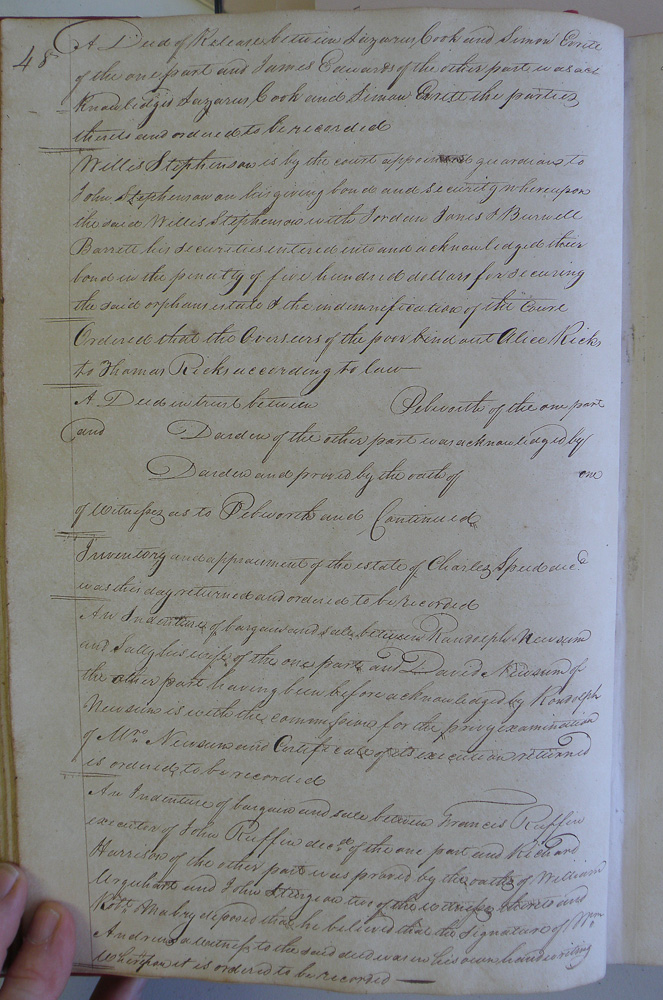 48
A Deed of Release between Lazarus Cook and Simon
of the one part and James Edwards of the other part was ac
knowledged Lazarus Cook and Simon the parties
thereto and ordered to be recorded
Willis Stephenson is by the court appointed guardian to
John Stephenson on his giving bond and security whereupon
the said Willis Stephenson with Jordan Jones & Burwell
Barrett his securities entered into and acknowledged their
bond in the penalty of five hundred dollars for securing
the said orphans estate & the indemnification of the Court
Ordered that the Overseers of the poor bind out Alice Ricks
to Thomas Ricks according to law
A Deed in trust between Pebworth of the one part
and Darden of the other part was acknowledged by
Darden and proved by the oath of one
of witnesses as to Pebworth and Continued
Inventory and appraisment of the estate of Charles Speed decd
was this day returned and ordered to be recorded
An Indenture of bargain and sale between Randolph Newsum
and Sally his wife of the one part and David Newsum of
the other part having been before acknowledged by Randolph
Newsum is with the commission for the privy examination
of Mrs Newsum and Certificate of its execution returned
is ordered to be recorded
An Indenture of bargain and sale between Francis Ruffin
executor of John Ruffin decd of the one part and Richard
Harrison of the other part was proved by the oaths of William
Urquhart and John Sturgeon two of the witnesses thereto and
Mabry deposed that he believed that the signature of Wm
Andrews a witness to the said deed was in his own handwriting
Whereupon it is ordered to be recorded